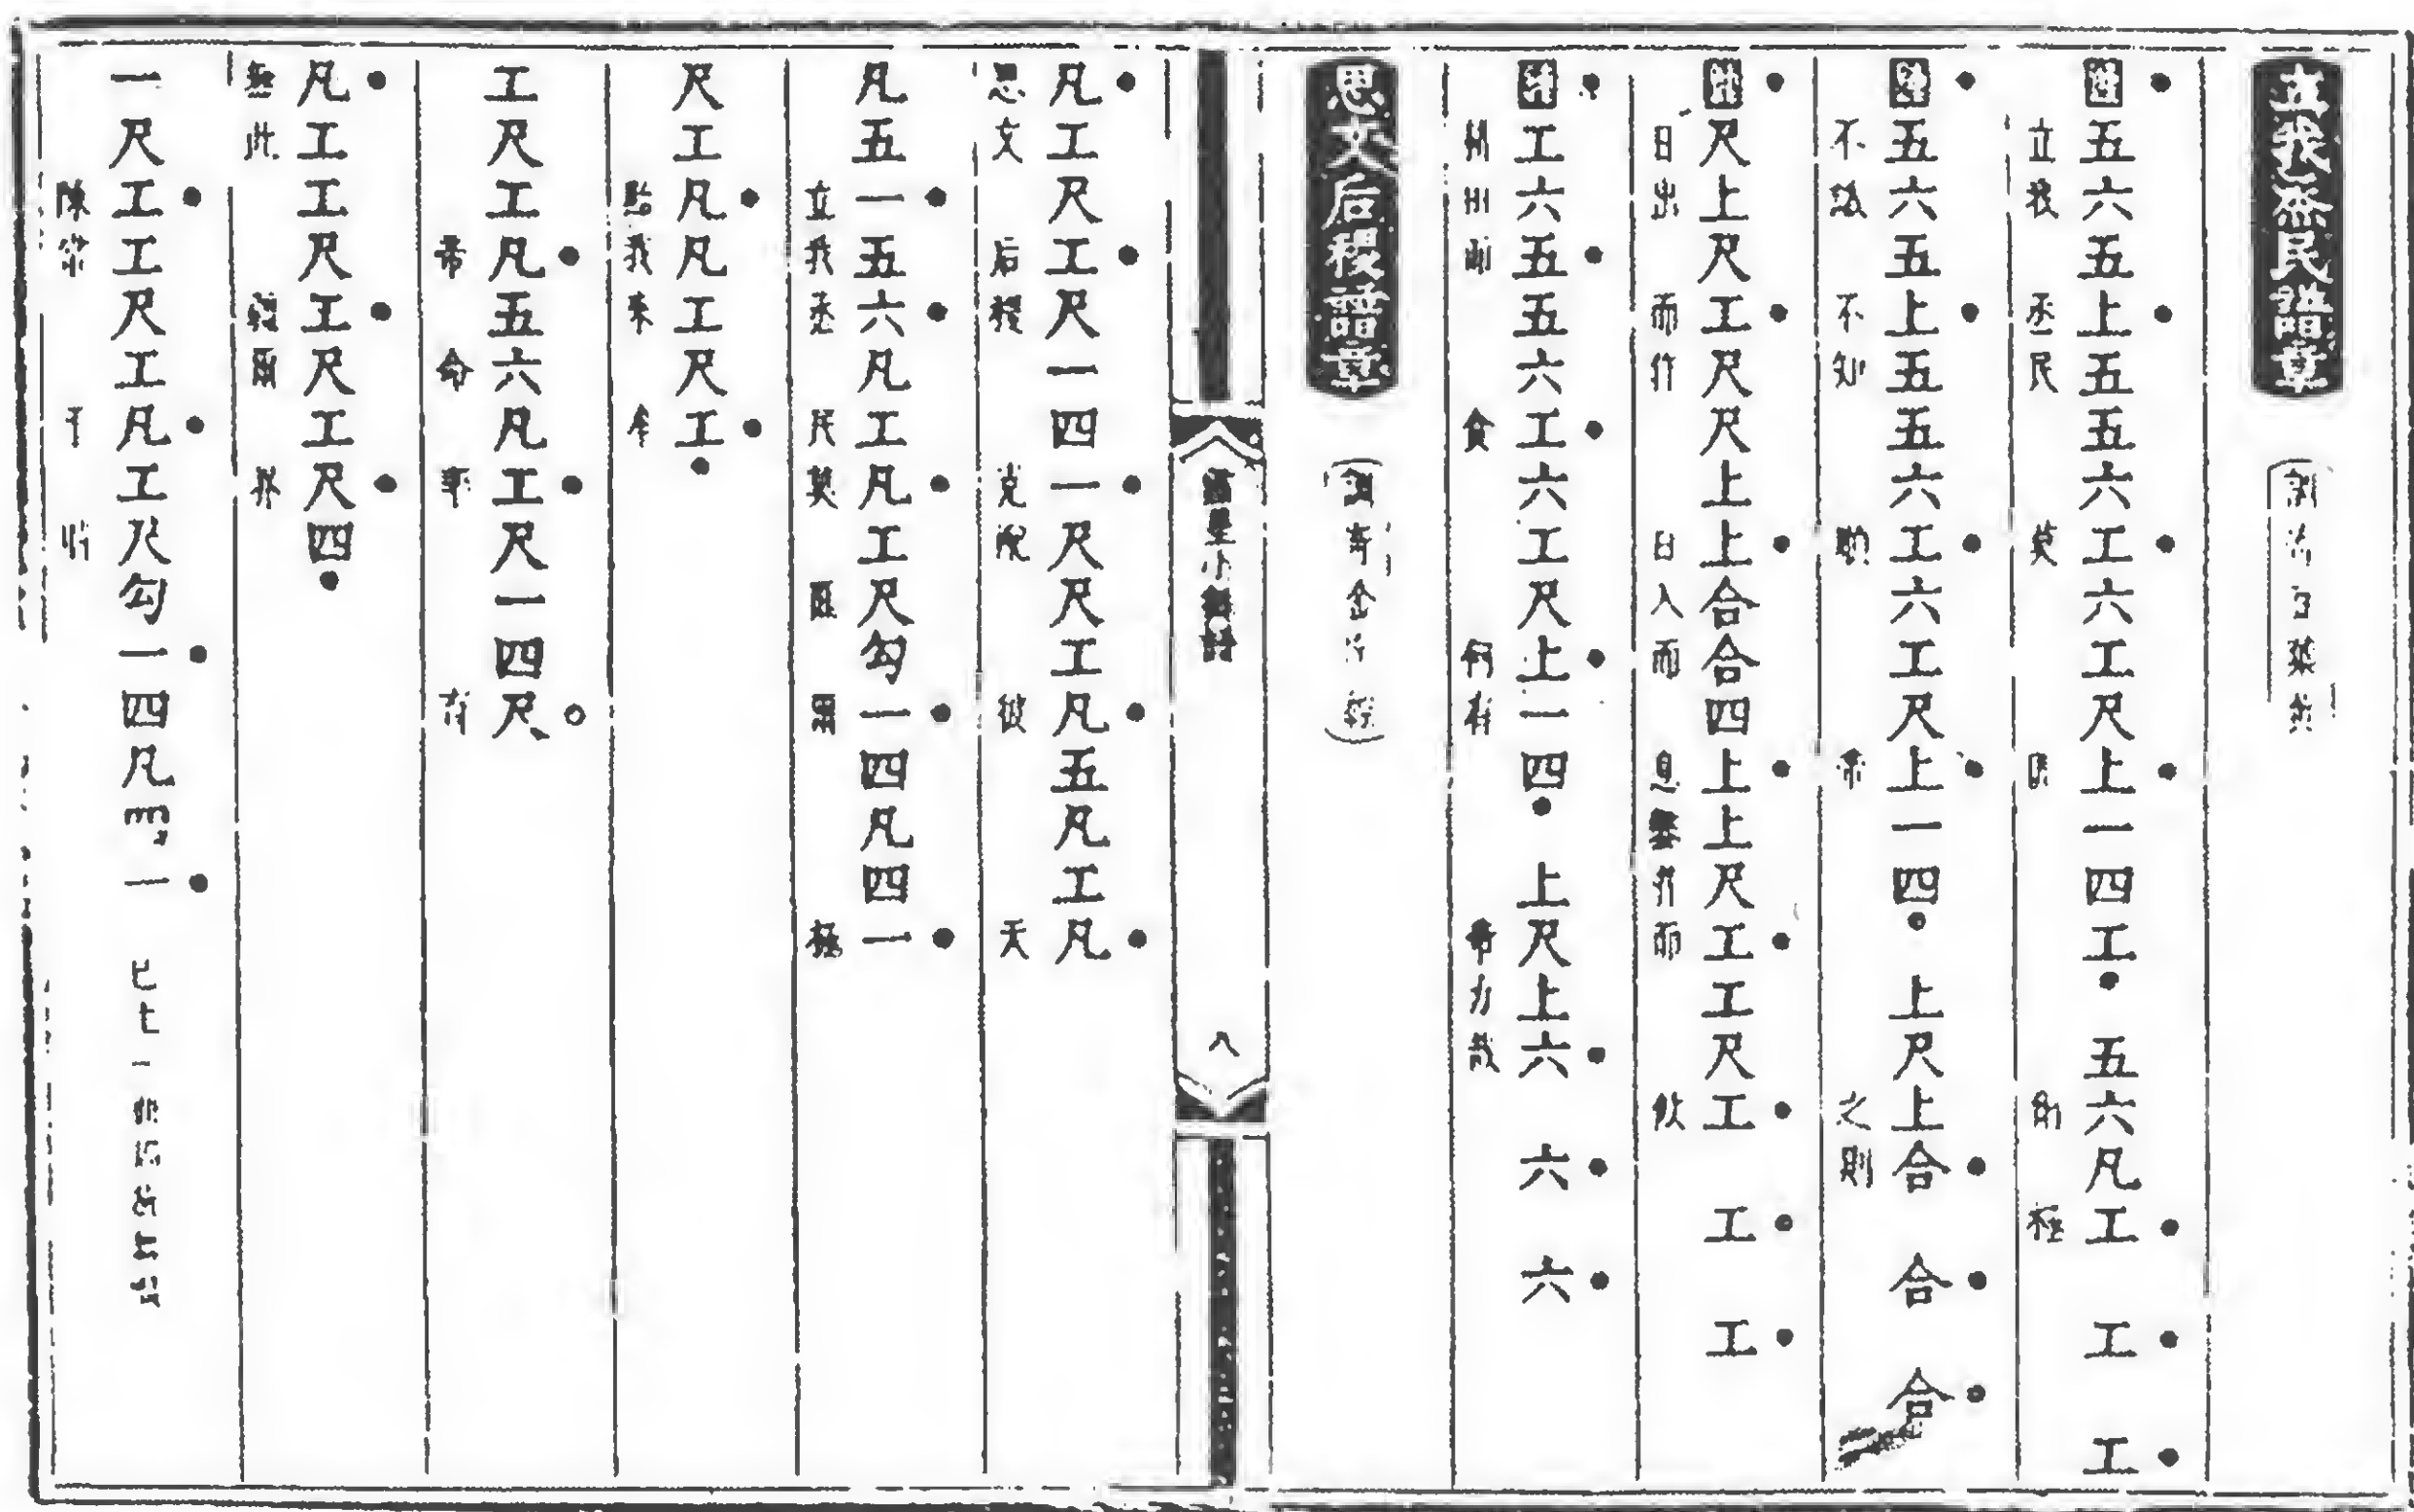 立我烝民譜章
五六五上五五六工六工尺上一四工五六凡工工工
立我烝民莫匪爾極
五六五上五五六工六工尺上一四上尺上合合合
不識不知順帝之則
尺上尺工尺尺上上合合四上上尺工工尺工工工
日出而作日入而息鑿井而飲
工六五五六工六工尺上一四上尺上六六六
耕田而食何有帝力哉
思文后稷譜章
八
凡工尺工尺一四一尺尺工凡五凡工凡
思文后稷克配彼天
凡五一五六凡工凡工尺勾一四凡四一
立我烝民莫匪爾極
尺工凡凡工尺工
貽我來牟
工尺工凡五六凡工尺一四尺
帝命率育
凡工工尺工尺工尺四
無此疆爾界
一尺工工尺工凡工尺勾一四凡四一
陳常于時